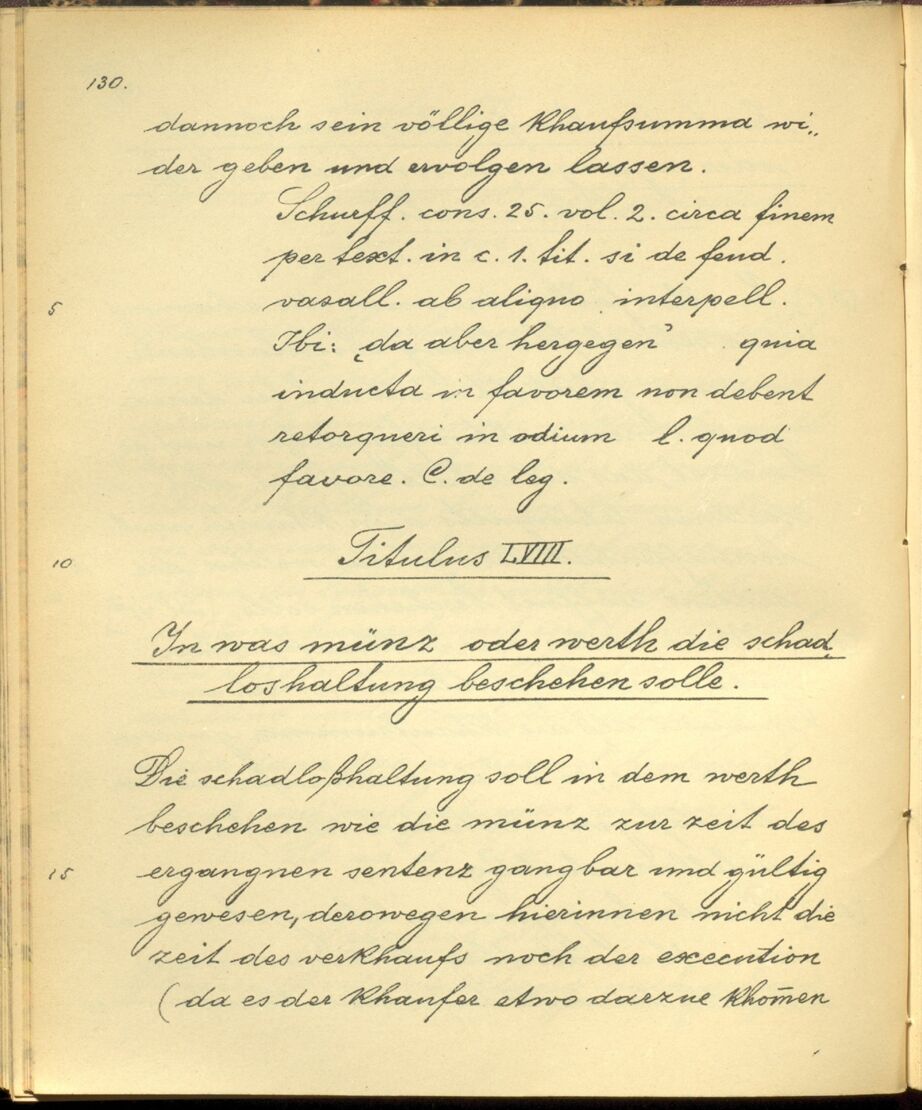 130.
dannoch sein völlige Khaufsumma wi„
der geben und ervolgen lassen.
Schurff. cons. 25. vol. 2. circa finem
per text. in c. 1. tit. si de feud.
5 vasall. ab aliquo interpell.
Ibi: ‚da aber hergegen' quia
inducta in favorem non debent
retorqueri in odium l. quod
favore. C. de leg.
10 Titulus LVIII.
In was münz oder werth die schad„
loshaltung beschehen solle.
Die schadloßhaltung soll in dem werth
beschehen wie die münz zur zeit des
15 ergangnen sentenz gangbar und gültig
gewesen, derowegen hierinnen nicht die
zeit des verkhaufs noch der execution
(da es der Khaufer etwo darzue khom̄en